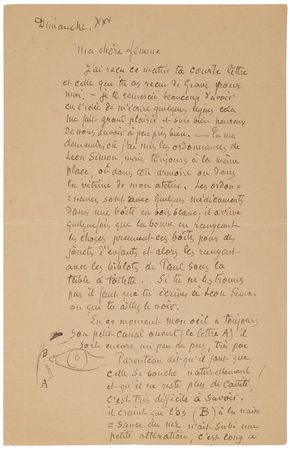 Dimanche, XXV
Ma chère femme
J'ai reçu ce matin ta courte lettre
et celle que tu as reçu de Grane pour
moi. - Je te remercie beaucoup d'avoir
eu l'idée de m'écrire quelques lignes cela
me fait grand plaisir et suis bien heureux
de vous savoir à peu près bien. — Tu me
demandes où j'ai mis les ordonnances de
Leon Simon, mais toujours à la même
place, ou dans ton armoire ou dans
la vitrine de mon atelier. Les ordon=
=nances sont avec quelques médicaments
dans une boîte en bois blanc. il arrive
quelquefois que la bonne en rangeant
les choses prennent ces boîtes pour des
jouets d'enfants et alors les rangent
avec les bibelots de Paul sous la
table à toilette. Si tu ne les trouves
pas il faut que tu écrive à Leon Simon
ou que tu ailles le voir.
En ce moment mon œil a toujours
son petit canal ouvert (la lettre A) il
sort encore un peu de pus, très peu
Parenteau dit qu'il faut que
celle se bouche naturellement
et qu'il ne reste plus de cavité,
c'est très difficile à savoir.
il craint que l'os (B) à la nais=
=sance du nez n'ait subi une
petite altération, c'est long a
B
C
A